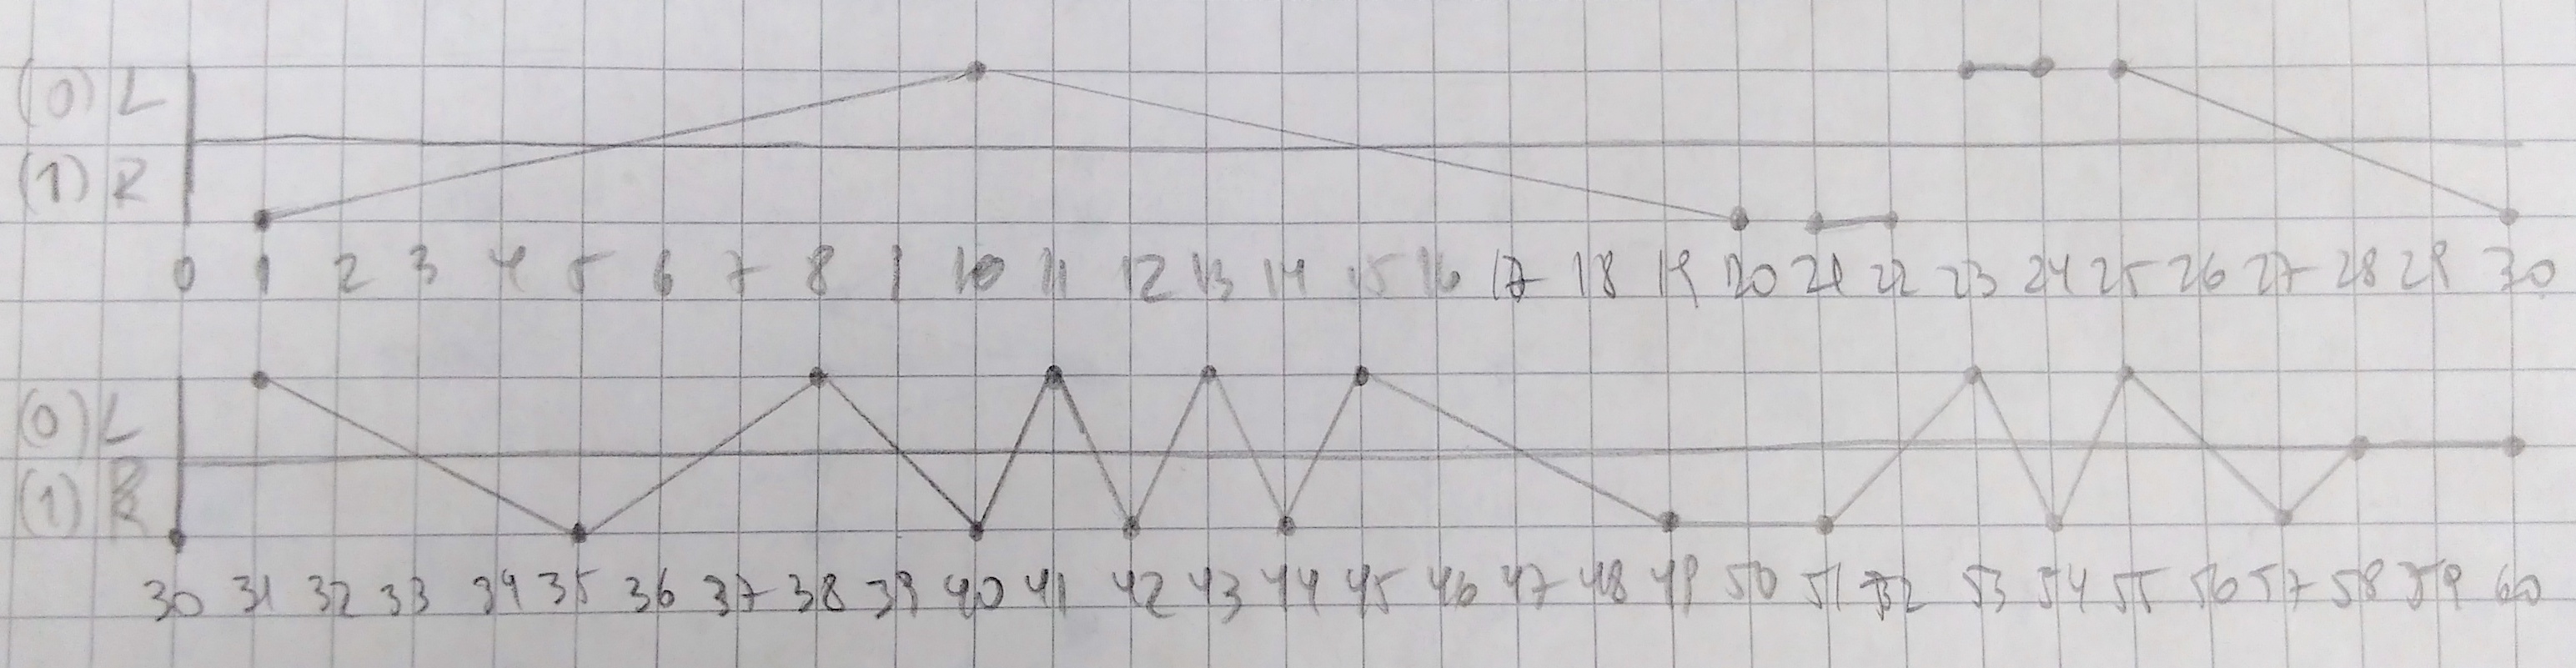 (0) L
(1) R
0 1 2 3 4 5 6 7 8 9 10 11 12 13 14 15 16 17 18 19 20 21 22 23 24 25 26 27 28 29 30
(0) L
(1) R
30 31 32 33 34 35 36 37 38 39 40 41 42 43 44 45 46 47 48 49 50 51 52 53 54 55 56 57 58 59 60